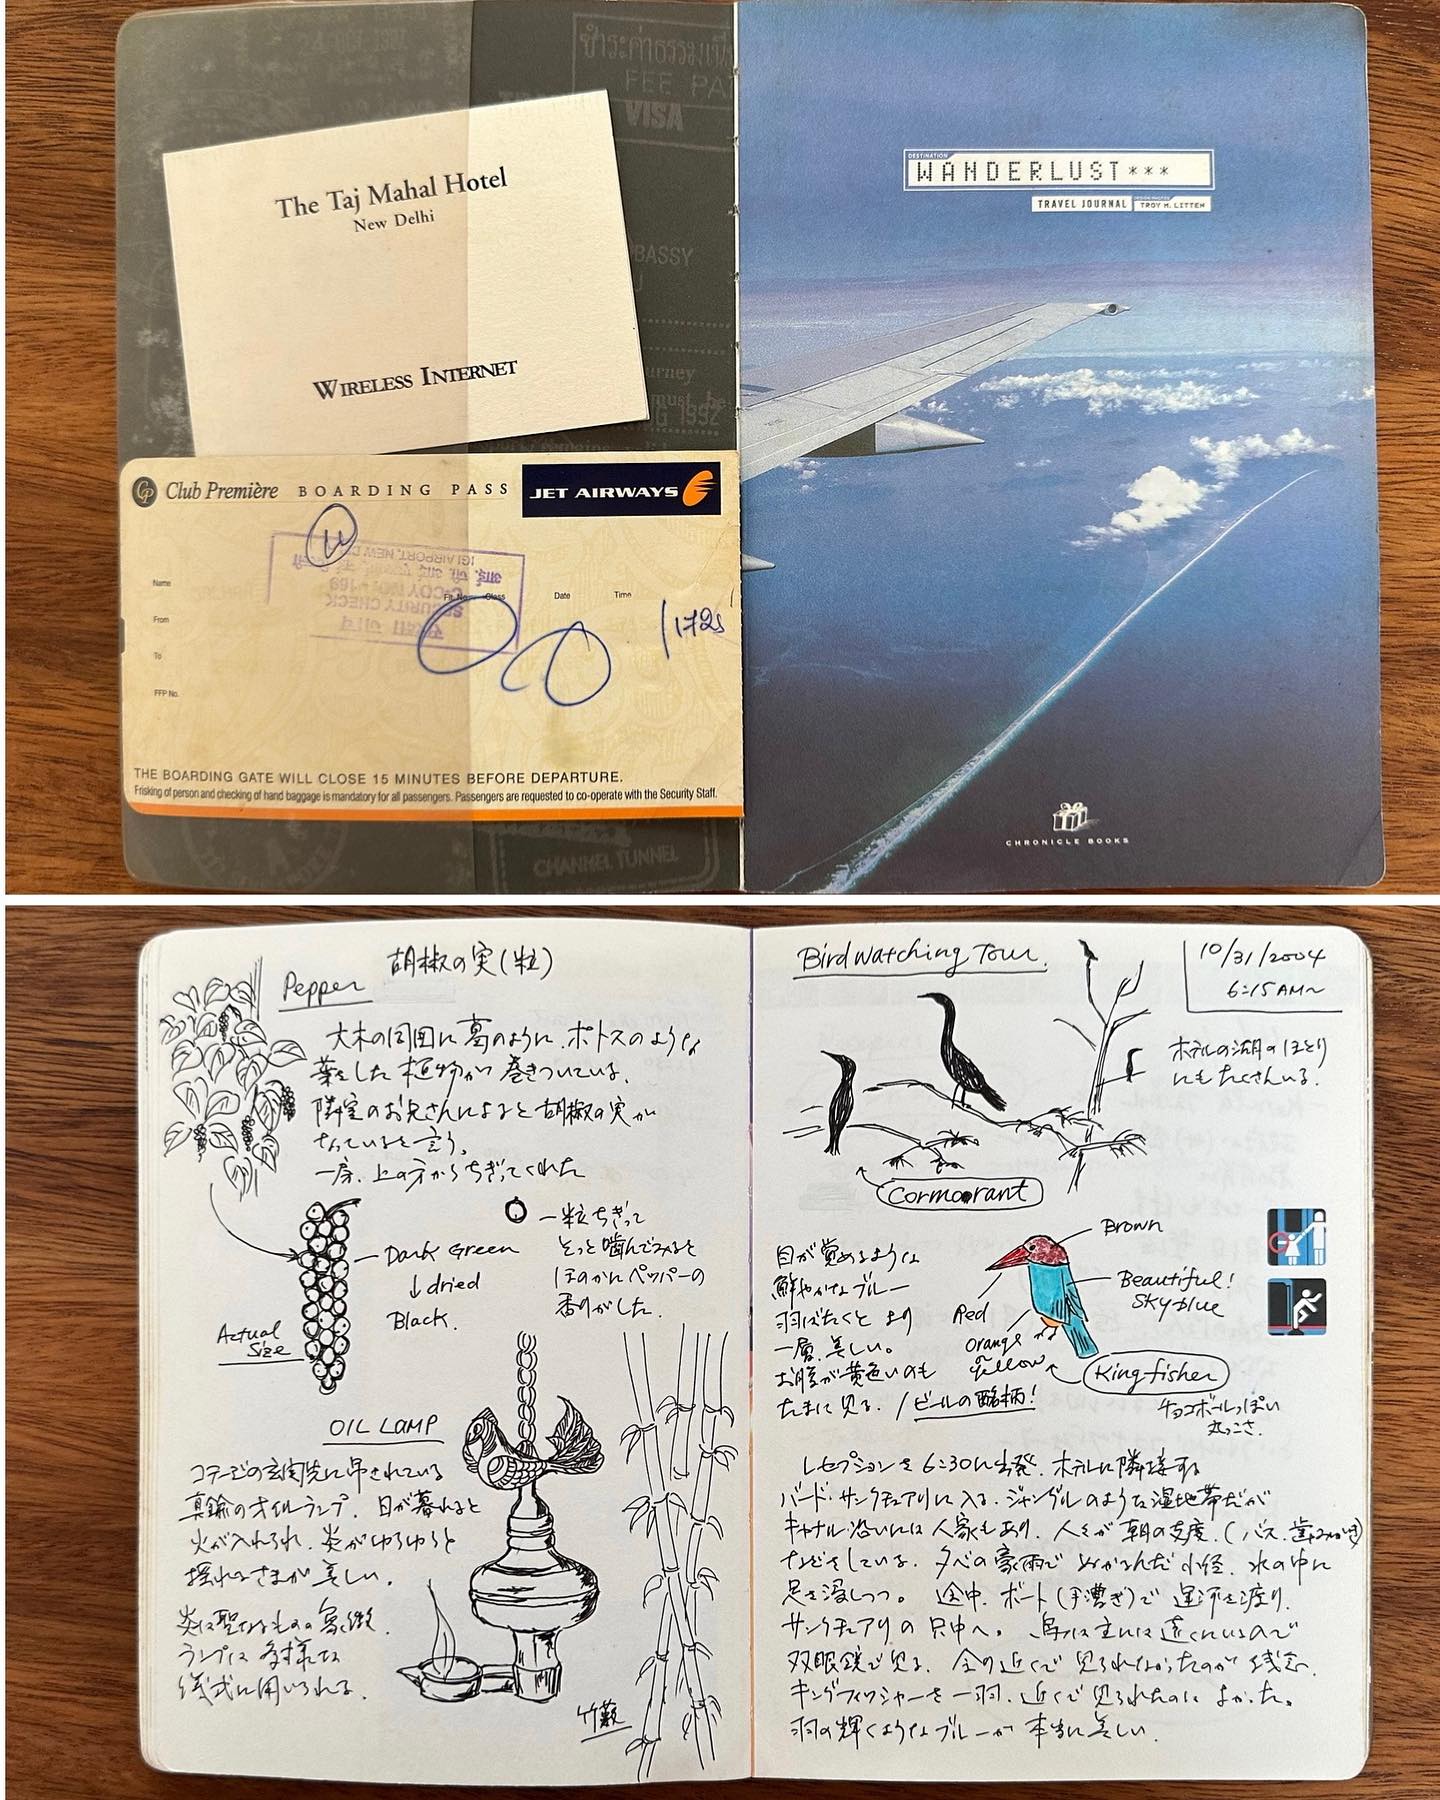 ชำระค่าธรรมเนี
FEE PA
VISA
The Taj Mahal Hotel
New Delhi
BASSY
WIRELESS INTERNET
urney
must be
1992
DESTINATION
WANDERLUST***
TRAVEL JOURNAL
TROY M. LITTEN
CHRONICLE BOOKS
CP Club Première BOARDING PASS
JET AIRWAYS
SECURITY CHECK
IGI AIRPORT, NEW D
Name
Flt. No. Class Date Time
From
To
FFP No.
THE BOARDING GATE WILL CLOSE 15 MINUTES BEFORE DEPARTURE.
Frisking of person and checking of hand baggage is mandatory for all passengers. Passengers are requested to co-operate with the Security Staff.
CHANNEL TUNNEL
胡椒の実(粒)
Pepper
大木の周囲に葛のように、ポトスのような
葉をした植物が巻きついている。
隣室のお兄さんによると胡椒の実が
なっていると言う。
一房、上の方からちぎってくれた
Dark Green
↓dried
Black.
Actual
Size
一粒ちぎって
そっと噛んでみると
ほのかにペッパーの
香りがした.
OIL LAMP
コテージの玄関先に吊されている
真鍮のオイルランプ. 日が暮れると
火が入れられ、炎がゆらゆらと
揺れるさまが美しい.
炎は聖なるものの象徴.
ランプは多様な
儀式に用いられる.
竹藪
Birdwatching Tour.
10/31/2004
6:15AM~
ホテルの湖のほとり
にもたくさんいる.
Cormorant
目が覚めるような
鮮やかなブルー
羽ばたくとより
一層、美しい。
お腹が黄色いのも
たまに見る.
Brown
Red
Beautiful!
Sky blue
orange
yellow
Kingfisher
ビールの銘柄!
チョコボールっぽい
丸っこさ.
レセプションを6:30に出発. ホテルに隣接する
バード・サンクチュアリに入る. ジャングルのような湿地帯だが
キャナル沿いには人家もあり、人々が朝の支度.(バス、歯みがき)
などをしている. 夕べの豪雨でぬかるんだ小径、水の中に
足を浸しつつ。途中、ボート(手漕ぎ)で運河を渡り、
サンクチュアリの只中へ。鳥は主に遠くにいるので
双眼鏡で見る. 全て近くで見られなかったのが残念.
キングフィッシャーを一羽、近くで見られたのはよかった。
羽の輝くようなブルーが本当に美しい.